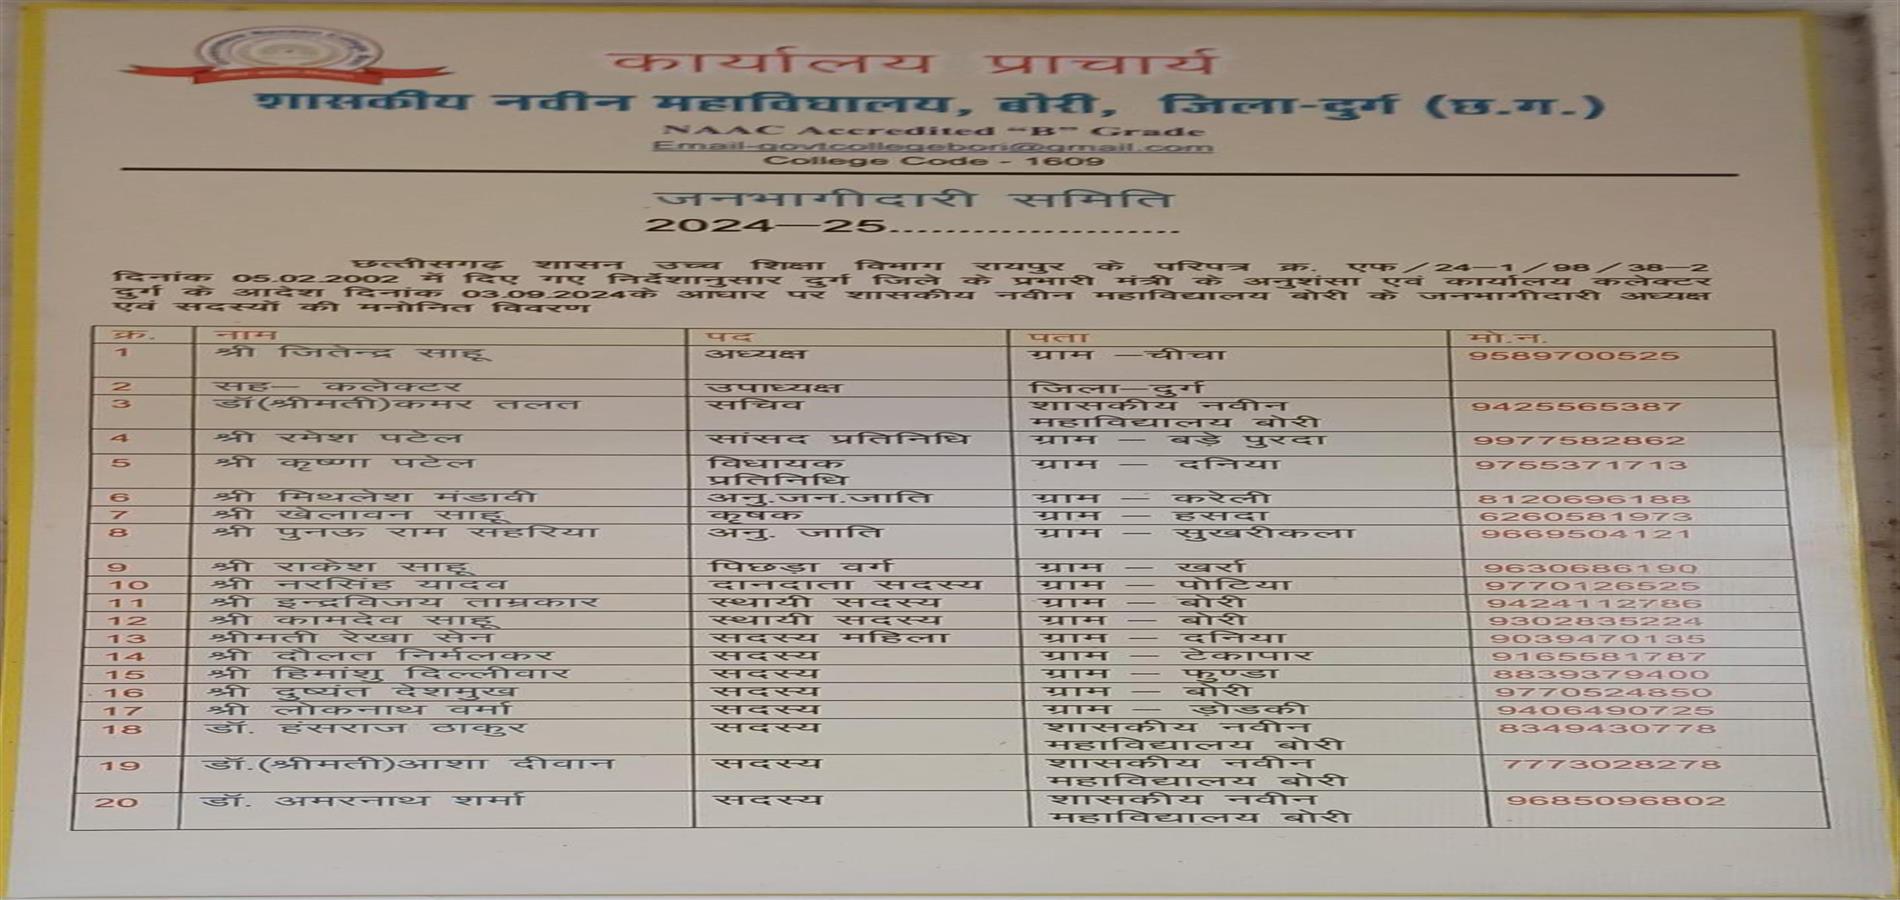 कार्यालय प्राचार्य
शासकीय नवीन महाविद्यालय, बोरी, जिला-दुर्ग (छ.ग.)
NAAC Accredited “B” Grade
Email-govtcollegebori@gmail.com
College Code - 1609
जनभागीदारी समिति
2024—25.....................
छत्तीसगढ़ शासन उच्च शिक्षा विभाग रायपुर के परिपत्र क्र. एफ/24-1/98/38-2
दिनांक 05.02.2002 में दिए गए निर्देशानुसार दुर्ग जिले के प्रभारी मंत्री के अनुशंसा एवं कार्यालय कलेक्टर
दुर्ग के आदेश दिनांक 03.09.2024के आधार पर शासकीय नवीन महाविद्यालय बोरी के जनभागीदारी अध्यक्ष
एवं सदस्यों की मनोनित विवरण
क्र. नाम पद पता मो.न.
1 श्री जितेन्द्र साहू अध्यक्ष ग्राम –चीचा 9589700525
2 सह– कलेक्टर उपाध्यक्ष जिला–दुर्ग
3 डॉ(श्रीमती)कमर तलत सचिव शासकीय नवीन 9425565387
महाविद्यालय बोरी
4 श्री रमेश पटेल सांसद प्रतिनिधि ग्राम – बड़े पुरदा 9977582862
5 श्री कृष्णा पटेल विधायक ग्राम – दनिया 9755371713
प्रतिनिधि
6 श्री मिथलेश मंडावी अनु.जन.जाति ग्राम – करेली 8120696188
7 श्री खेलावन साहू कृषक ग्राम – हसदा 6260581973
8 श्री पुनऊ राम सहरिया अनु. जाति ग्राम – सुखरीकला 9669504121
9 श्री राकेश साहू पिछड़ा वर्ग ग्राम – खर्रा 9630686190
10 श्री नरसिंह यादव दानदाता सदस्य ग्राम – पोटिया 9770126525
11 श्री इन्द्रविजय ताम्रकार स्थायी सदस्य ग्राम – बोरी 9424112786
12 श्री कामदेव साहू स्थायी सदस्य ग्राम – बोरी 9302835224
13 श्रीमती रेखा सेन सदस्य महिला ग्राम – दनिया 9039470135
14 श्री दौलत निर्मलकर सदस्य ग्राम – टेकापार 9165581787
15 श्री हिमांशु दिल्लीवार सदस्य ग्राम – फुण्डा 8839379400
16 श्री दुष्यंत देशमुख सदस्य ग्राम – बोरी 9770524850
17 श्री लोकनाथ वर्मा सदस्य ग्राम – ड़ोडकी 9406490725
18 डॉ. हंसराज ठाकुर सदस्य शासकीय नवीन 8349430778
महाविद्यालय बोरी
19 डॉ.(श्रीमती)आशा दीवान सदस्य शासकीय नवीन 7773028278
महाविद्यालय बोरी
20 डॉ. अमरनाथ शर्मा सदस्य शासकीय नवीन 9685096802
महाविद्यालय बोरी